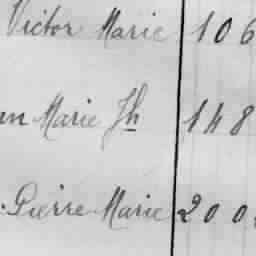 Victor Marie 106
an Marie Jh 148
Pierre Marie 200